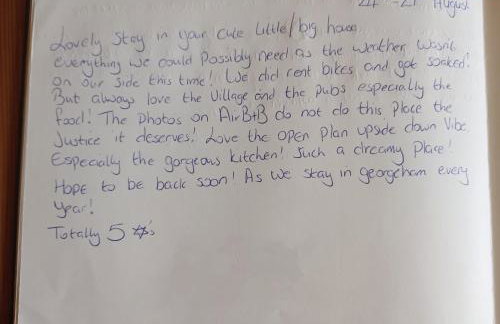 24 - 27 August
Lovely stay in your cute little/big house
everything we could possibly need as the weather wasn't
on our side this time! We did rent bikes and got soaked!
But always love the village and the pubs especially the
food! The photos on AirB+B do not do this place the
justice it deserves! Love the open plan upside down vibe.
Especially the gorgeous kitchen! Such a dreamy place!
Hope to be back soon! As we stay in georgeham every
year!
Totally 5 ☆'s